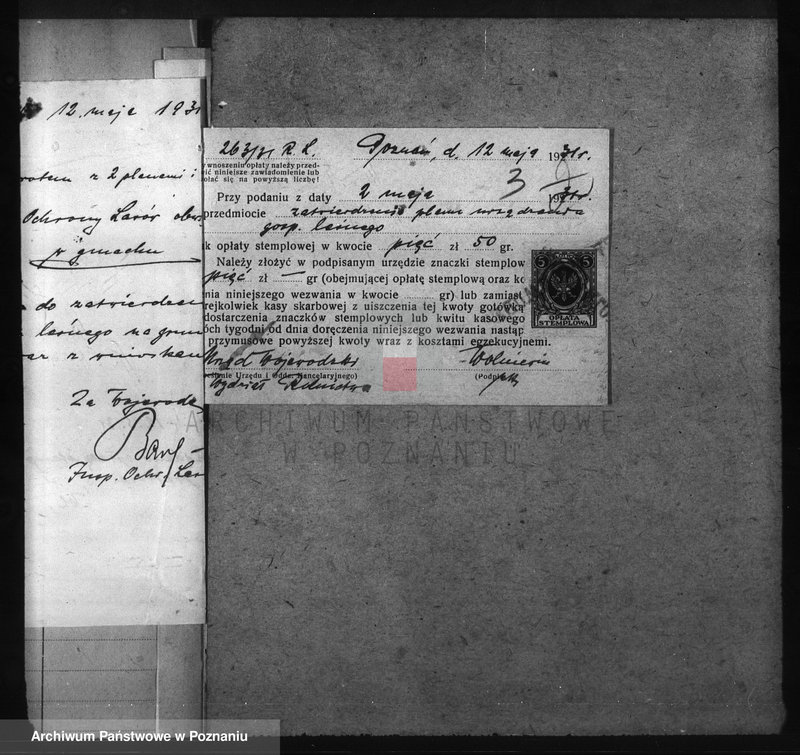 12. maja 1931
z 2 planami i
Ochrony Lasów
w gmachu
do
lasnego na
z
Za Wojewodę
Insp. Ochr. Las
263/31 R. L.
Poznań, d. 12 maja 1931 r.
wnoszeniu opłaty należy przed-
wić niniejsze zawiadomienie lub
ołać się na powyższą liczbę!
3
Przy podaniu z daty 2 maja 1931 r.
przedmiocie zatwierdzenia planu urządzenia
gosp. lasnego
k opłaty stemplowej w kwocie pięć zł 50 gr.
Należy złożyć w podpisanym urzędzie znaczki stemplow
pięć zł — gr (obejmującej opłatę stemplową oraz ko
nia niniejszego wezwania w kwocie gr) lub zamiast
rejkolwiek kasy skarbowej z uiszczenia tej kwoty gotówką
dostarczenia znaczków stemplowych lub kwitu kasowego
óch tygodni od dnia doręczenia niniejszego wezwania nastąp
przymusowe powyższej kwoty wraz z kosztami egzekucyjnemi.
Urząd Wojewódzki
(Określenie Urzędu i Oddz. Kancelaryjnego)
Wydział Rolnictwa
(Podpis)
5 5
OPŁATA
STEMPLOWA
ARCHIWUM PAŃSTWOWE
W POZNANIU
Archiwum Państwowe w Poznaniu